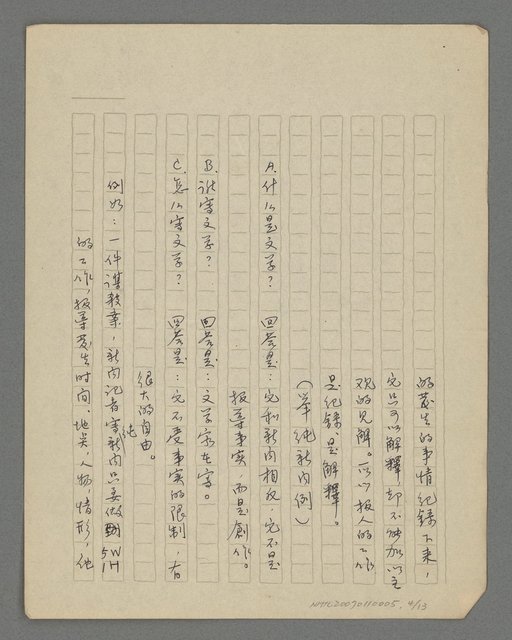 的發生的事情紀錄下來，
它只可以解釋却不能加以主
观的見解。所以报人的工作
是紀錄、是解釋。
（举純新闻例）
A.什么是文学？　回答是：它和新闻相反，它不是
报導事实　而是創作。
B.谁寫文学？　回答是：文学家在寫。
C.怎么寫文学？　回答是：它不受事实的限制，有
很大的自由。
例如：一件谋殺案，新闻记者寫純新闻只要做到5W1H
的工作，报導發生时间、地点，人物，情形，他
NMTL20070110005, 4/13